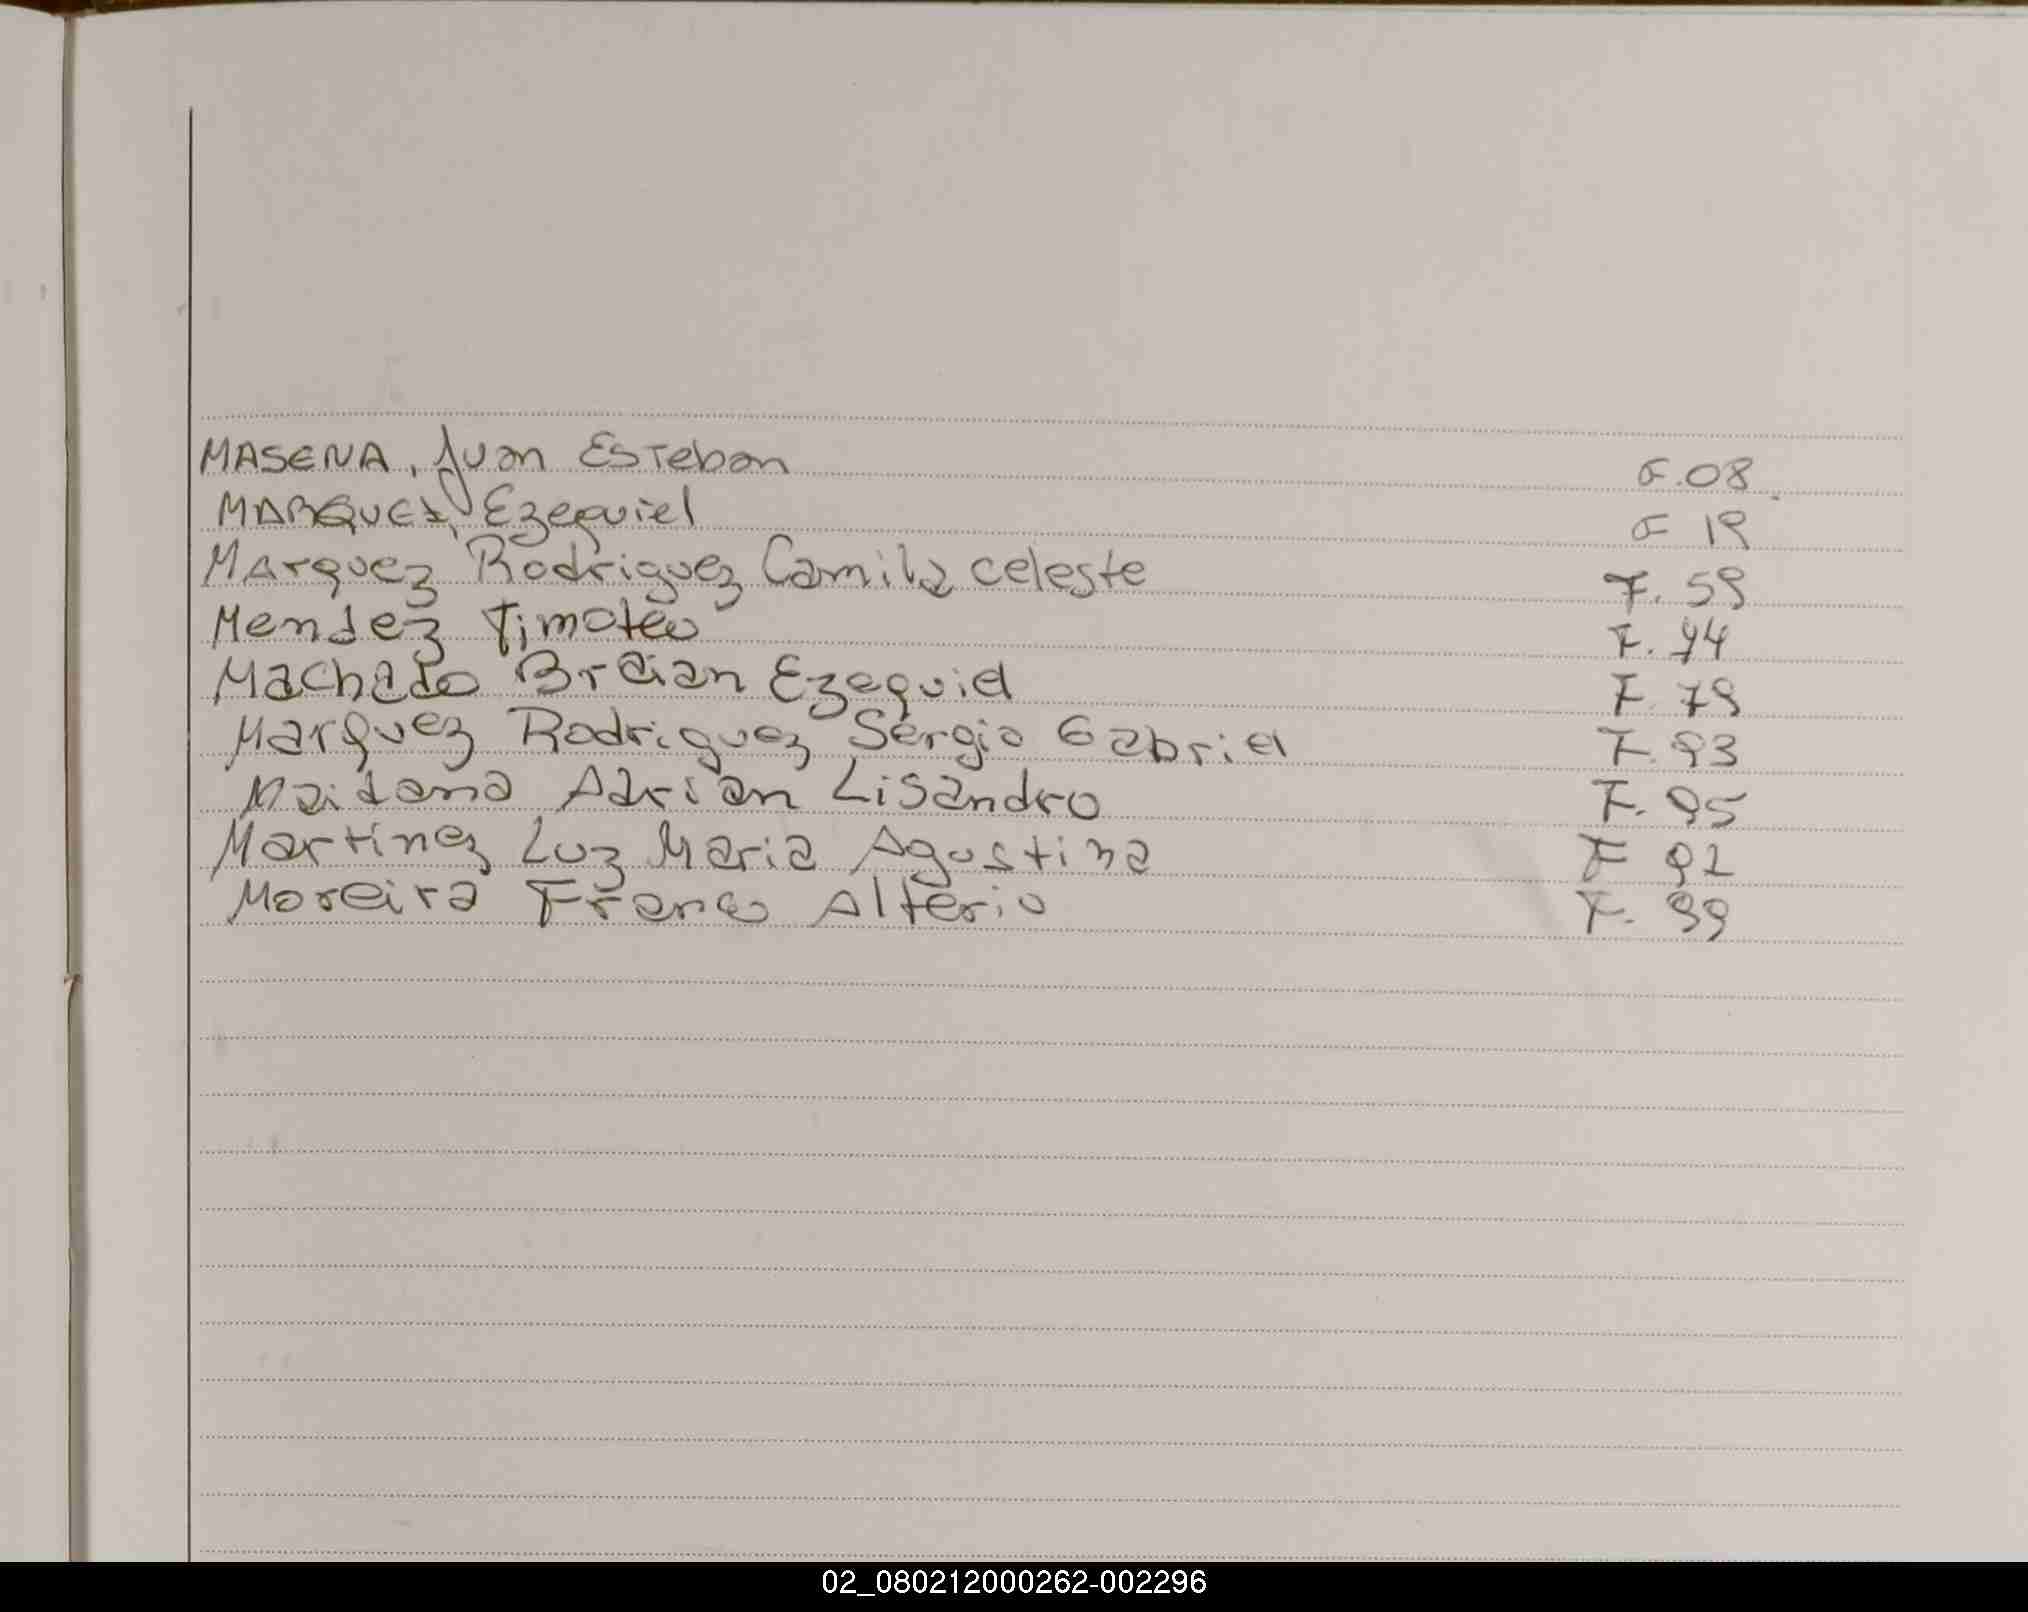 MASENA, Juan Esteban F.08.
MARQUEZ, Ezequiel F 19
Marquez Rodriguez Camila celeste F. 59
Mendez Timoteo F. 74
Machado Braian Ezequiel F. 79
Marquez Rodriguez Sergio Gabriel F. 93
Maidana Adrian Lisandro F. 95
Martinez Luz Maria Agustina F 92
Moreira Franco Alterio F. 99
02_080212000262-002296